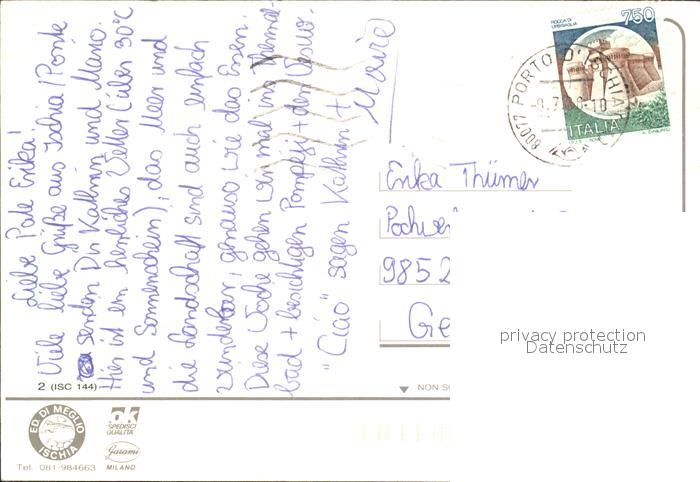 Liebe Pate Erika!
Viele liebe Grüße aus Ischia/Ponte
senden Dir Kathrin und Mario.
Hier ist ein herrliches Wetter (über 30°C
und Sonnenschein), das Meer und
die Landschaft sind auch einfach
wunderbar, genauso wie das Essen.
Diese Woche gehen wir mal ins Thermal-
bad + besichtigen Pompeji + den Vesuv.
"Ciao" sagen Kathrin +
Mario
ROCCA DI URBISAGLIA
750
ITALIA
80077 PORTO D'ISCHIA
Erika Thümer
985
Ge
privacy protection
Datenschutz
2 (ISC 144)
NON S
ED. DI MEGLIO
ISCHIA
Tel. 081/984663
ok
SPEDISCI
QUALITA'
Garami
MILANO